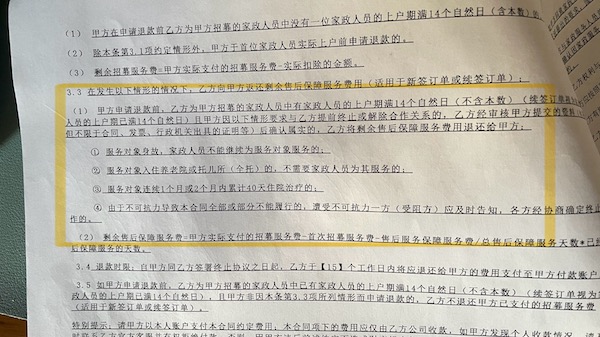 (1) 甲方在申请退款前乙方为甲方招募的家政人员中没有一位家政人员的上户期满14个自然日(含本数)的
(2) 除本条第3.1项约定情形外，甲方于首位家政人员实际上户前申请退款的。
(3) 剩余招募服务费=甲方实际支付的招募服务费-实际扣除的金额。
3.3 在发生以下情形的情况下，乙方向甲方返还剩余售后保障服务费用（适用于新签订单或续签订单）：
(1) 甲方申请退款前，乙方为甲方招募的家政人员中有家政人员的上户期满14个自然日（不含本数）（续签订单视为
人员的上户期已满14个自然日）且甲方因以下情形要求与乙方提前终止或解除合作关系的，乙方经审核甲方提交的资料
但不限于合同、发票、行政机关出具的证明等）后确认属实的，乙方将剩余售后保障服务费用退还给甲方：
① 服务对象身故，家政人员不能继续为服务对象服务的；
② 服务对象入住养老院或托儿所（全托）的，不需要家政人员为其服务的；
③ 服务对象连续1个月或2个月内累计40天住院治疗的；
④ 由于不可抗力导致本合同全部或部分不能履行的，遭受不可抗力一方（受阻方）应及时告知，各方经协商确定终止
作的。
(2) 剩余售后保障服务费=甲方实际支付的招募服务费-首次招募服务费-售后服务保障服务费/总售后保障服务天数*已
后保障服务的天数。
3.4 退款时限：自甲方同乙方签署终止协议之日起，乙方于【15】个工作日内将应退还给甲方的费用支付至甲方付款账户
3.5 如甲方申请退款前，乙方为甲方招募的家政人员中已有家政人员的上户期满14个自然日（不含本数）（续签订单视为
政人员的上户期已满14个自然日），且甲方非因本条第3.3项所列情形而申请退款的，乙方不退还甲方已支付的招募服务
（适用于新签订单或续签订单）。
特别提示：请甲方以本人账户支付本合同约定费用，本合同项下的费用应仅由乙方公司收款，如甲方发现个人收款情况，